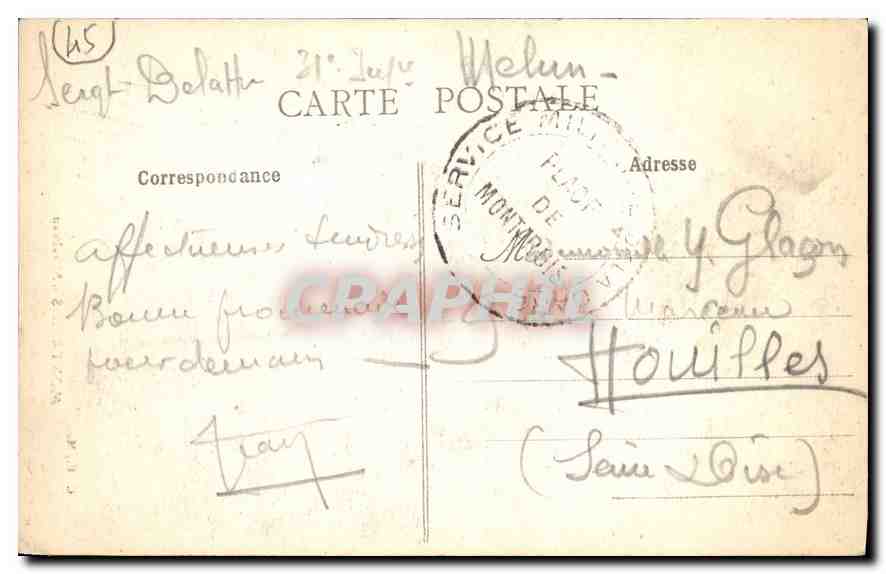 45
Sergt Delattre 31e Infie Melun
CARTE POSTALE
SERVICE MILITAIRE A LA
PLACE
DE
MONTARGIS
Correspondance
Adresse
Affectueuses tendresses
Bonne promenade
pour demain
Jean
Mademoiselle Y. Glaçon
Marceau
Houilles
(Seine & Oise)
CPARAMA